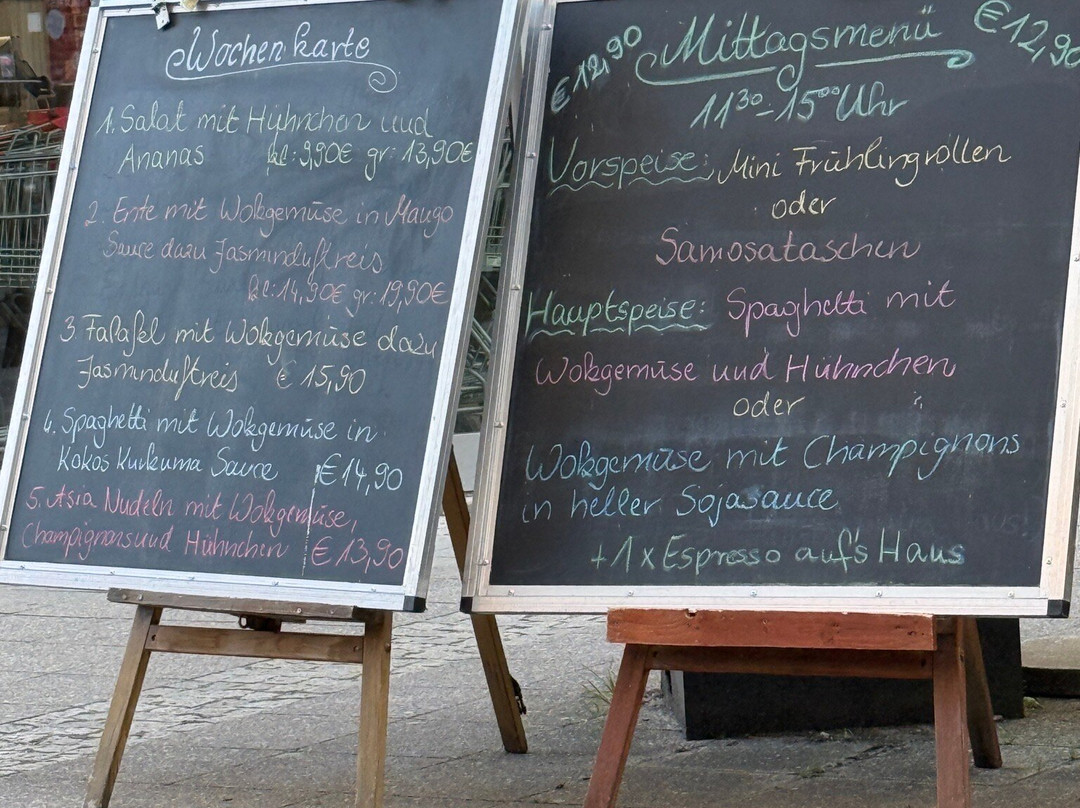 Wochenkarte
1. Salat mit Hühnchen und
Ananas kl: 9,90€ gr: 13,90€
2. Ente mit Wokgemüse in Mango
Sauce dazu Jasminduftreis
kl: 14,90€ gr: 19,90€
3 Falafel mit Wokgemüse dazu
Jasminduftreis € 15,90
4. Spaghetti mit Wokgemüse in
Kokos Kurkuma Sauce €14,90
5. Asia Nudeln mit Wokgemüse,
Champignons und Hühnchen €13,90
€12,90 Mittagsmenü €12,90
11³⁰-15⁰⁰ Uhr
Vorspeise: Mini Frühlingrollen
oder
Samosataschen
Hauptspeise: Spaghetti mit
Wokgemüse und Hühnchen
oder
Wokgemüse mit Champignons
in heller Sojasauce
+1 x Espresso auf's Haus